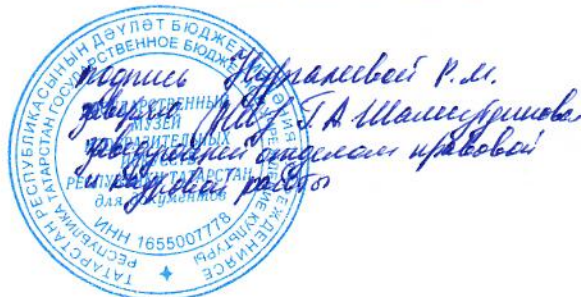 ТАТАРСТАН РЕСПУБЛИКАСЫНЫҢ ДӘҮЛӘТ БЮДЖЕТ УЧРЕЖДЕНИЯСЕ
РЕСПУБЛИКА ТАТАРСТАН ГОСУДАРСТВЕННОЕ БЮДЖЕТНОЕ УЧРЕЖДЕНИЕ КУЛЬТУРЫ
ГОСУДАРСТВЕННЫЙ
МУЗЕЙ
ИЗОБРАЗИТЕЛЬНЫХ
ИСКУССТВ
РЕСПУБЛИКИ ТАТАРСТАН
для документов
ИНН 1655007778
подпись Нургалиевой Р.М.
заверяю Г.А.
заведующий отделом правовой
и кадровой работы